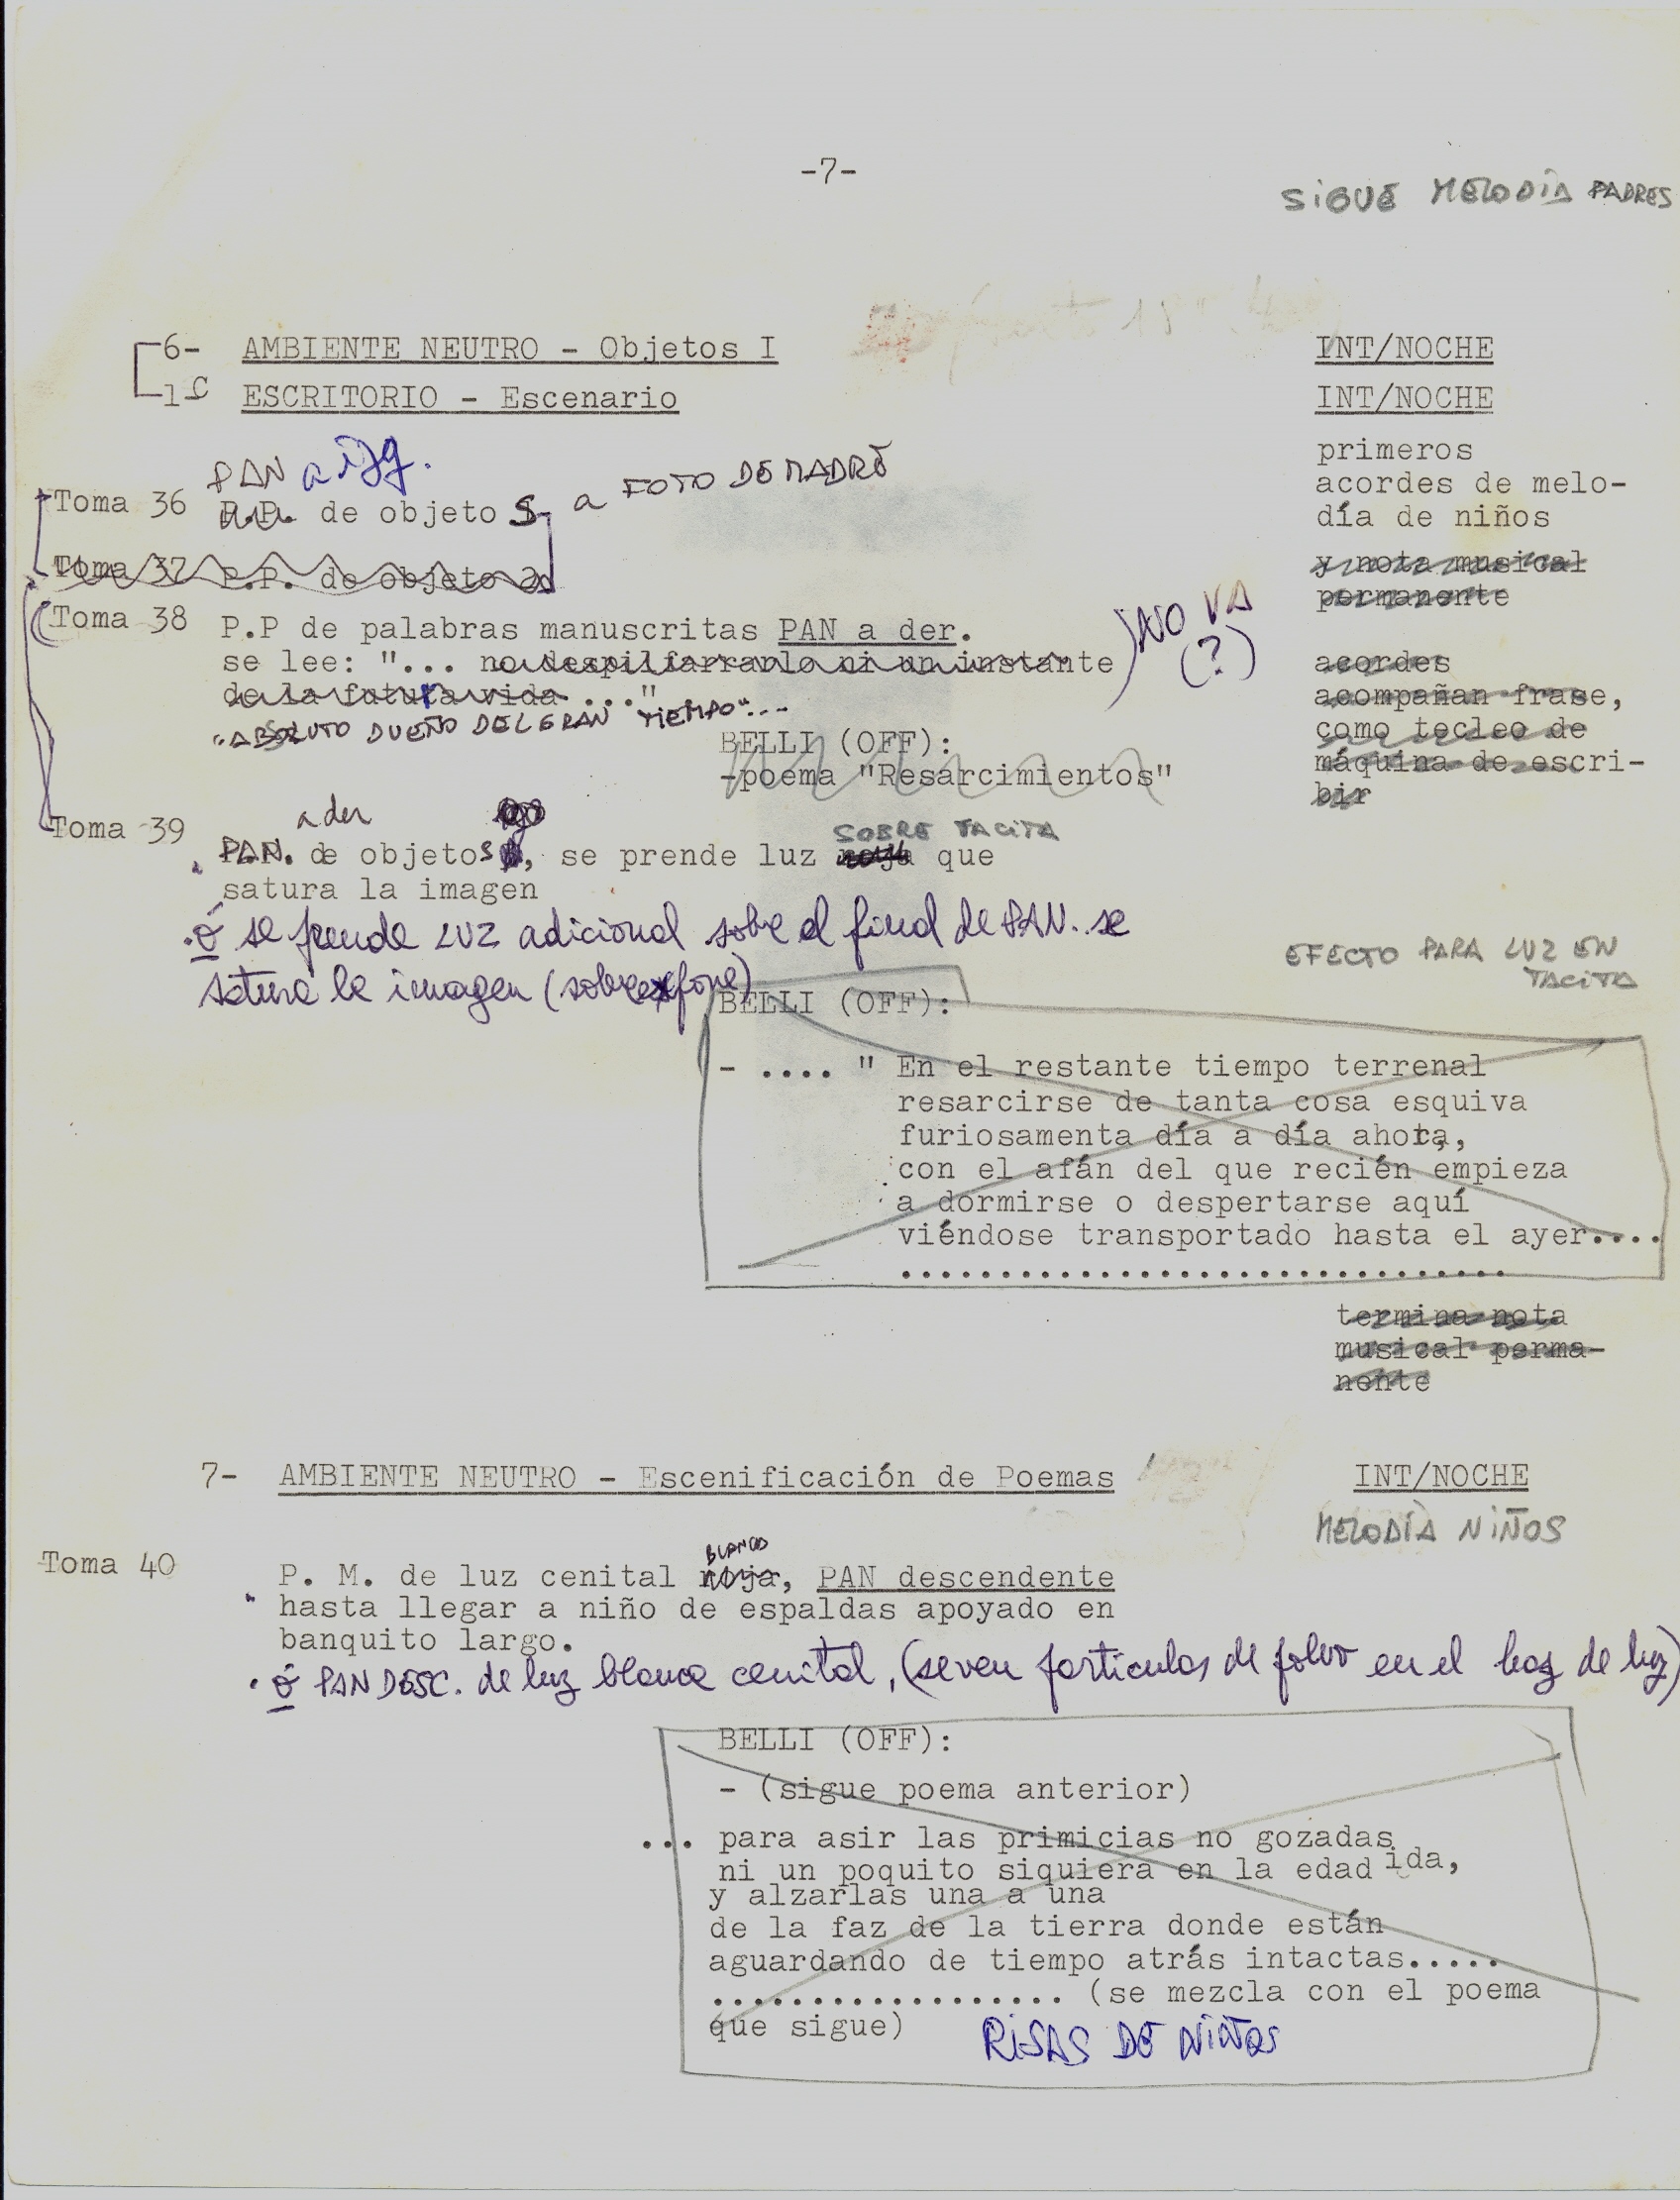 -7-
SIGUE MELODÍA PADRES
6- AMBIENTE NEUTRO - Objetos I INT/NOCHE
1-C ESCRITORIO - Escenario INT/NOCHE
primeros
acordes de melo-
día de niños
PAN a izq.
Toma 36 P.P. de objeto S a FOTO DE MADRE
Toma 37 P.P. de objeto 2
y nota musical
permanente
Toma 38 P.P de palabras manuscritas PAN a der.
se lee: "... no despilfarrarlo ni un instante
de la futura vida ..."
"ABSOLUTO DUEÑO DEL GRAN TIEMPO"...
NO VA
(?)
acordes
acompañan frase,
como tecleo de
máquina de escri-
bir
BELLI (OFF):
-poema "Resarcimientos"
a der
Toma 39 PAN. de objetos, se prende luz roja que
SOBRE TACITA
satura la imagen
.ó se prende LUZ adicional sobre el final de PAN. se
satura la imagen (sobrexpone)
EFECTO PARA LUZ EN
TACITA
BELLI (OFF):
- .... " En el restante tiempo terrenal
resarcirse de tanta cosa esquiva
furiosamenta día a día ahora,
con el afán del que recién empieza
a dormirse o despertarse aquí
viéndose transportado hasta el ayer....
...............................
termina nota
musical perma-
nente
7- AMBIENTE NEUTRO - Escenificación de Poemas INT/NOCHE
MELODÍA NIÑOS
BLANCO
Toma 40 P. M. de luz cenital roja, PAN descendente
hasta llegar a niño de espaldas apoyado en
banquito largo.
. ó PAN DESC. de luz blanca cenital, (se ven partículas de polvo en el haz de luz)
BELLI (OFF):
- (sigue poema anterior)
... para asir las primicias no gozadas
ni un poquito siquiera en la edad ida,
y alzarlas una a una
de la faz de la tierra donde están
aguardando de tiempo atrás intactas.....
.................. (se mezcla con el poema
que sigue)
RISAS DE NIÑOS